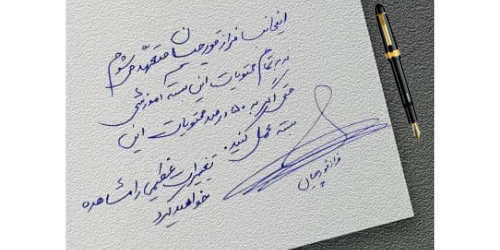 اینجانب فراز قورچیان متعهد می شوم
به تمام محتویات این بسته آموزشی
حتی اگر به ۵۰ درصد محتویات این
بسته عمل کنید. تغییرات عظیمی را مشاهده
خواهید کرد
فراز قورچیان